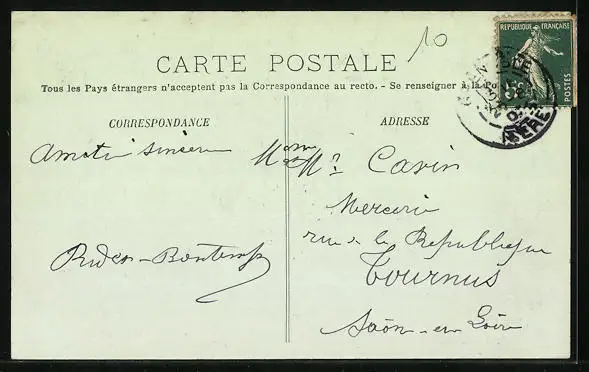 10
RÉPUBLIQUE FRANÇAISE
POSTES
CARTE POSTALE
Tous les Pays étrangers n'acceptent pas la Correspondance au recto. - Se renseigner à la Po
CORRESPONDANCE
ADRESSE
sincère
Cavin
Mercerie
rue de la République
Tournus
Saône-en Loire
Bontemps